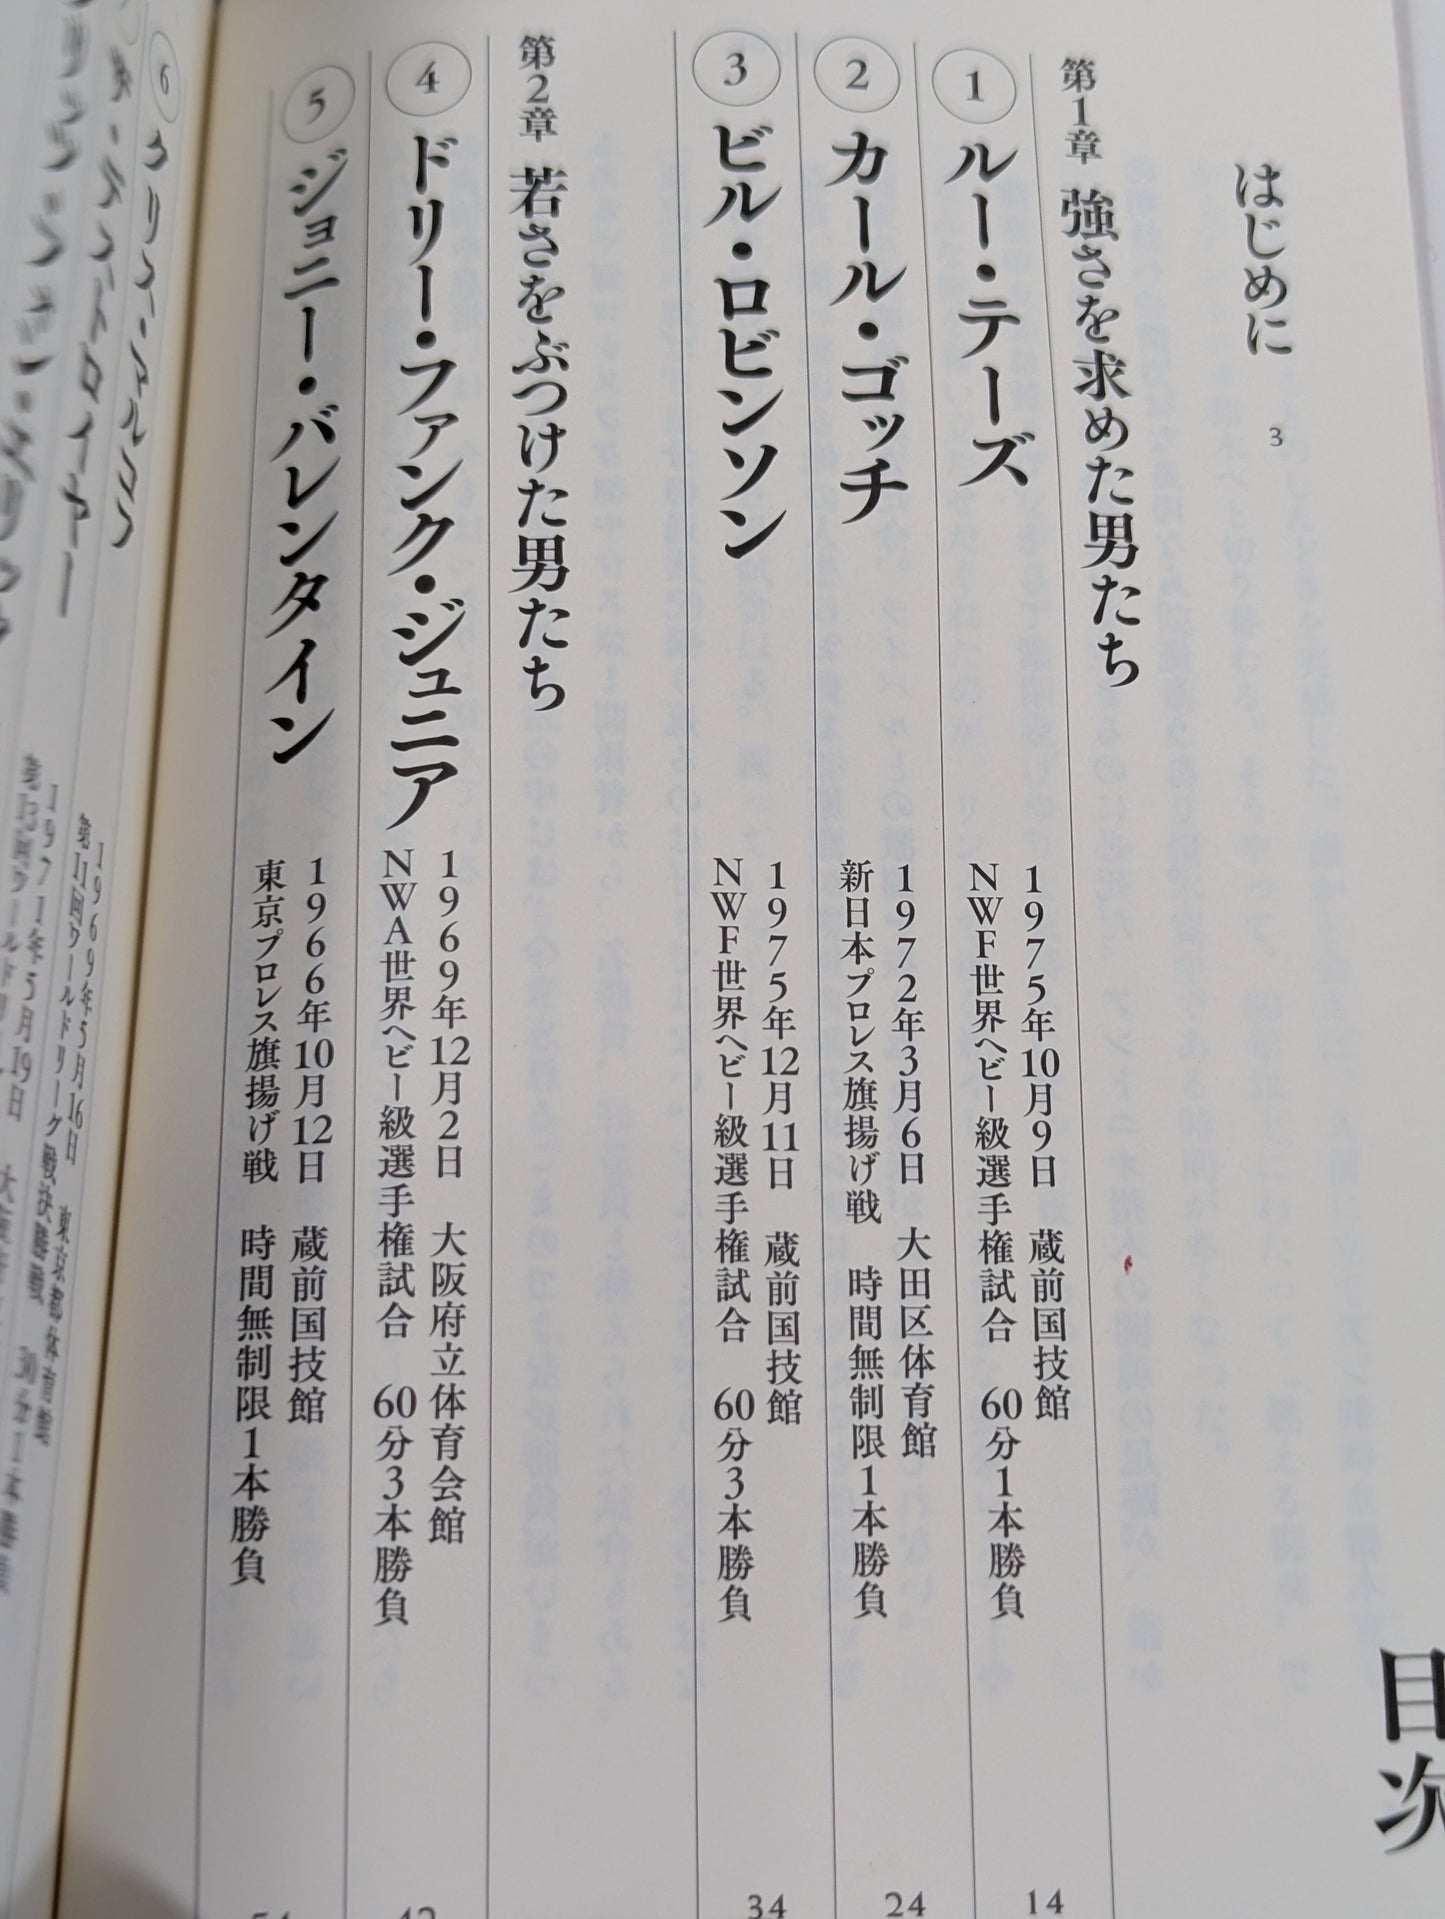 目次
はじめに 3
第1章 強さを求めた男たち
1 ルー・テーズ
1975年10月9日 蔵前国技館
NWF世界ヘビー級選手権試合 60分1本勝負
14
2 カール・ゴッチ
1972年3月6日 大田区体育館
新日本プロレス旗揚げ戦 時間無制限1本勝負
24
3 ビル・ロビンソン
1975年12月11日 蔵前国技館
NWF世界ヘビー級選手権試合 60分3本勝負
34
第2章 若さをぶつけた男たち
4 ドリー・ファンク・ジュニア
1969年12月2日 大阪府立体育会館
NWA世界ヘビー級選手権試合 60分3本勝負
42
5 ジョニー・バレンタイン
1966年10月12日 蔵前国技館
東京プロレス旗揚げ戦 時間無制限1本勝負
6 クリス・マルコフ
1969年5月16日 東京都体育館
第11回ワールドリーグ戦決勝戦 30分1本勝負
ザ・デストロイヤー
1971年5月19日